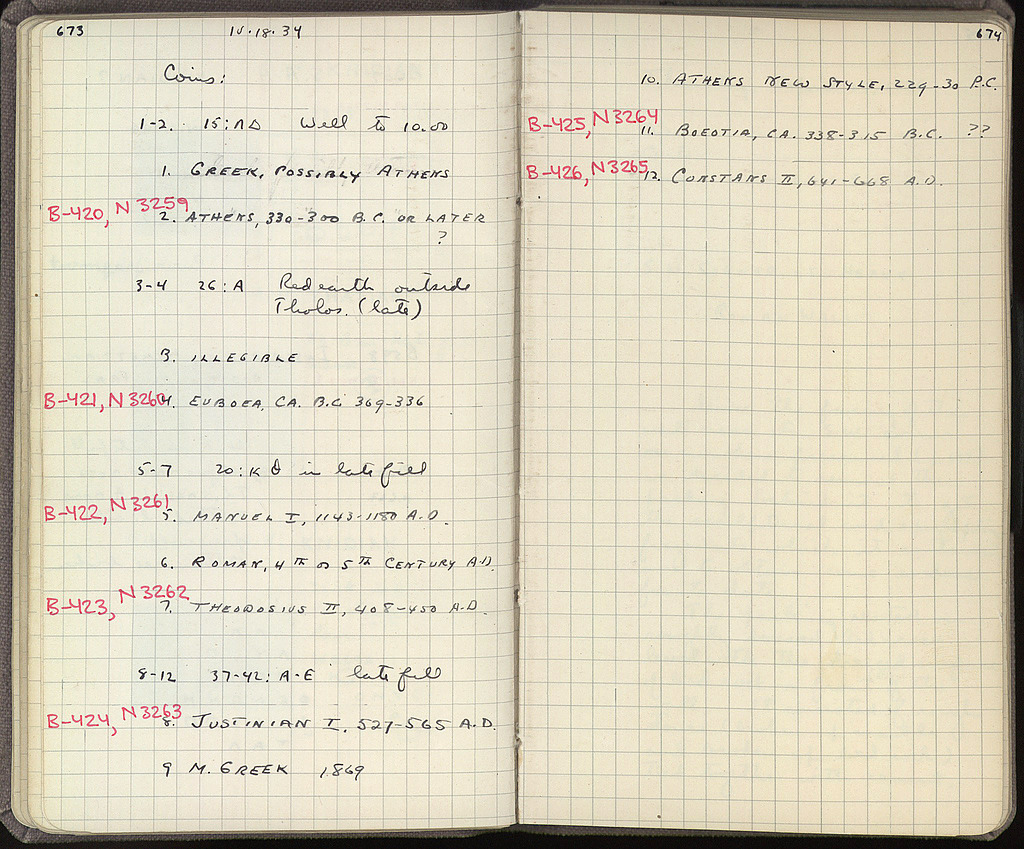 673
IV.18.34
Coins:
1-2. 15:ΛΔ Well to 10.00
1. GREEK, POSSIBLY ATHENS
B-420, N 3259
2. ATHENS, 330-300 B.C. OR LATER
?
3-4 26:A Red earth outside
Tholos. (late)
3. ILLEGIBLE
B-421, N 3260 4. EUBOEA, CA. B.C. 369-336
5-7 20:K in late fill
B-422, N 3261
5. MANUEL I, 1143-1180 A.D.
6. ROMAN, 4TH OR 5TH CENTURY A.D.
B-423, N 3262
7. THEODOSIUS II, 408-450 A.D.
8-12 37-42: A-E late fill
B-424, N 3263
8. JUSTINIAN I, 527-565 A.D.
9 M. GREEK 1869
674
10. ATHENS NEW STYLE, 229-30 B.C.
B-425, N 3264
11. BOEOTIA, CA. 338-315 B.C. ??
B-426, N 3265
12. CONSTANS II, 641-668 A.D.